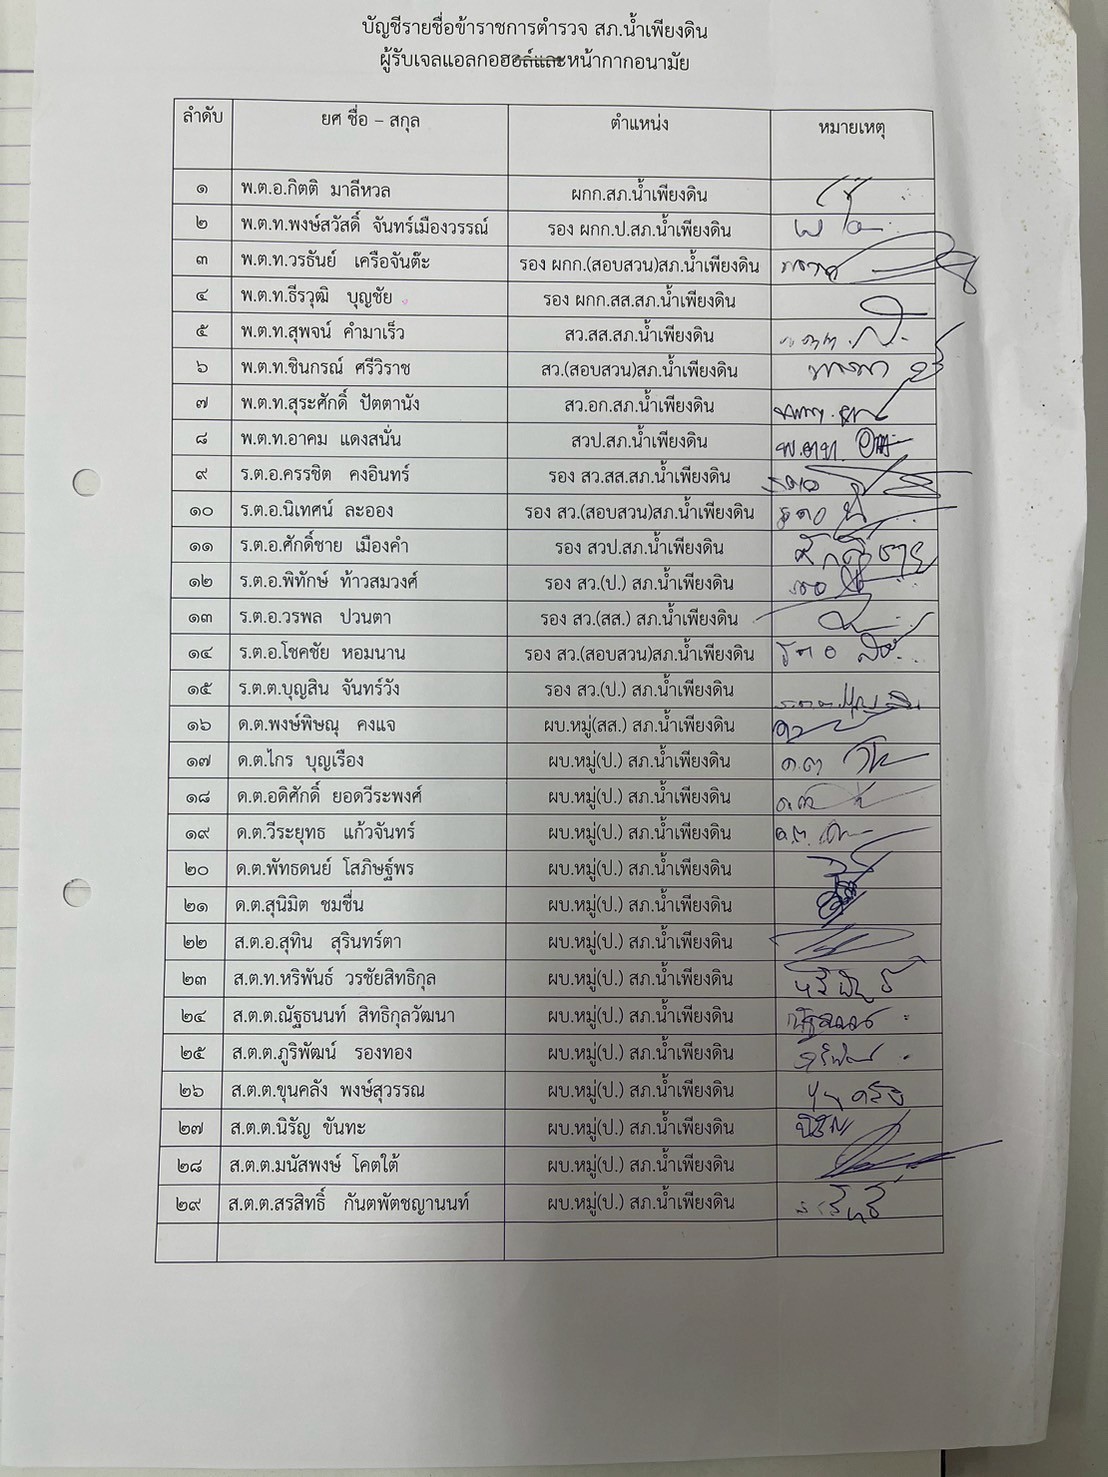 บัญชีรายชื่อข้าราชการตำรวจ สภ.น้ำเพียงดิน
ผู้รับเจลแอลกอฮอล์และหน้ากากอนามัย
ลำดับ ยศ ชื่อ – สกุล ตำแหน่ง หมายเหตุ
๑ พ.ต.อ.กิตติ มาลีหวล ผกก.สภ.น้ำเพียงดิน
๒ พ.ต.ท.พงษ์สวัสดิ์ จันทร์เมืองวรรณ์ รอง ผกก.ป.สภ.น้ำเพียงดิน
๓ พ.ต.ท.วรธันย์ เครือจันต๊ะ รอง ผกก.(สอบสวน)สภ.น้ำเพียงดิน
๔ พ.ต.ท.ธีรวุฒิ บุญชัย รอง ผกก.สส.สภ.น้ำเพียงดิน
๕ พ.ต.ท.สุพจน์ คำมาเร็ว สว.สส.สภ.น้ำเพียงดิน
๖ พ.ต.ท.ชินกรณ์ ศรีวิราช สว.(สอบสวน)สภ.น้ำเพียงดิน
๗ พ.ต.ท.สุระศักดิ์ ปัตตานัง สว.อก.สภ.น้ำเพียงดิน
๘ พ.ต.ท.อาคม แดงสนั่น สวป.สภ.น้ำเพียงดิน พ.ต.ท.
๙ ร.ต.อ.ครรชิต คงอินทร์ รอง สว.สส.สภ.น้ำเพียงดิน รตอ
๑๐ ร.ต.อ.นิเทศน์ ละออง รอง สว.(สอบสวน)สภ.น้ำเพียงดิน รตอ
๑๑ ร.ต.อ.ศักดิ์ชาย เมืองคำ รอง สวป.สภ.น้ำเพียงดิน ศักดิ์ชาย
๑๒ ร.ต.อ.พิทักษ์ ท้าวสมวงศ์ รอง สว.(ป.) สภ.น้ำเพียงดิน
๑๓ ร.ต.อ.วรพล ปวนตา รอง สว.(สส.) สภ.น้ำเพียงดิน
๑๔ ร.ต.อ.โชคชัย หอมนาน รอง สว.(สอบสวน)สภ.น้ำเพียงดิน รตอ
๑๕ ร.ต.ต.บุญสิน จันทร์วัง รอง สว.(ป.) สภ.น้ำเพียงดิน ร.ต.ต.บุญสิน
๑๖ ด.ต.พงษ์พิษณุ คงแจ ผบ.หมู่(สส.) สภ.น้ำเพียงดิน
๑๗ ด.ต.ไกร บุญเรือง ผบ.หมู่(ป.) สภ.น้ำเพียงดิน ด.ต.
๑๘ ด.ต.อดิศักดิ์ ยอดวีระพงศ์ ผบ.หมู่(ป.) สภ.น้ำเพียงดิน ด.ต.
๑๙ ด.ต.วีระยุทธ แก้วจันทร์ ผบ.หมู่(ป.) สภ.น้ำเพียงดิน ด.ต.
๒๐ ด.ต.พัทธดนย์ โสภิษฐ์พร ผบ.หมู่(ป.) สภ.น้ำเพียงดิน
๒๑ ด.ต.สุนิมิต ชมชื่น ผบ.หมู่(ป.) สภ.น้ำเพียงดิน
๒๒ ส.ต.อ.สุทิน สุรินทร์ตา ผบ.หมู่(ป.) สภ.น้ำเพียงดิน
๒๓ ส.ต.ท.หริพันธ์ วรชัยสิทธิกุล ผบ.หมู่(ป.) สภ.น้ำเพียงดิน หริพันธ์
๒๔ ส.ต.ต.ณัฐธนนท์ สิทธิกุลวัฒนา ผบ.หมู่(ป.) สภ.น้ำเพียงดิน
๒๕ ส.ต.ต.ภูริพัฒน์ รองทอง ผบ.หมู่(ป.) สภ.น้ำเพียงดิน
๒๖ ส.ต.ต.ขุนคลัง พงษ์สุวรรณ ผบ.หมู่(ป.) สภ.น้ำเพียงดิน ขุนคลัง
๒๗ ส.ต.ต.นิรัญ ขันทะ ผบ.หมู่(ป.) สภ.น้ำเพียงดิน นิรัญ
๒๘ ส.ต.ต.มนัสพงษ์ โคตใต้ ผบ.หมู่(ป.) สภ.น้ำเพียงดิน
๒๙ ส.ต.ต.สรสิทธิ์ กันตพัตชญานนท์ ผบ.หมู่(ป.) สภ.น้ำเพียงดิน